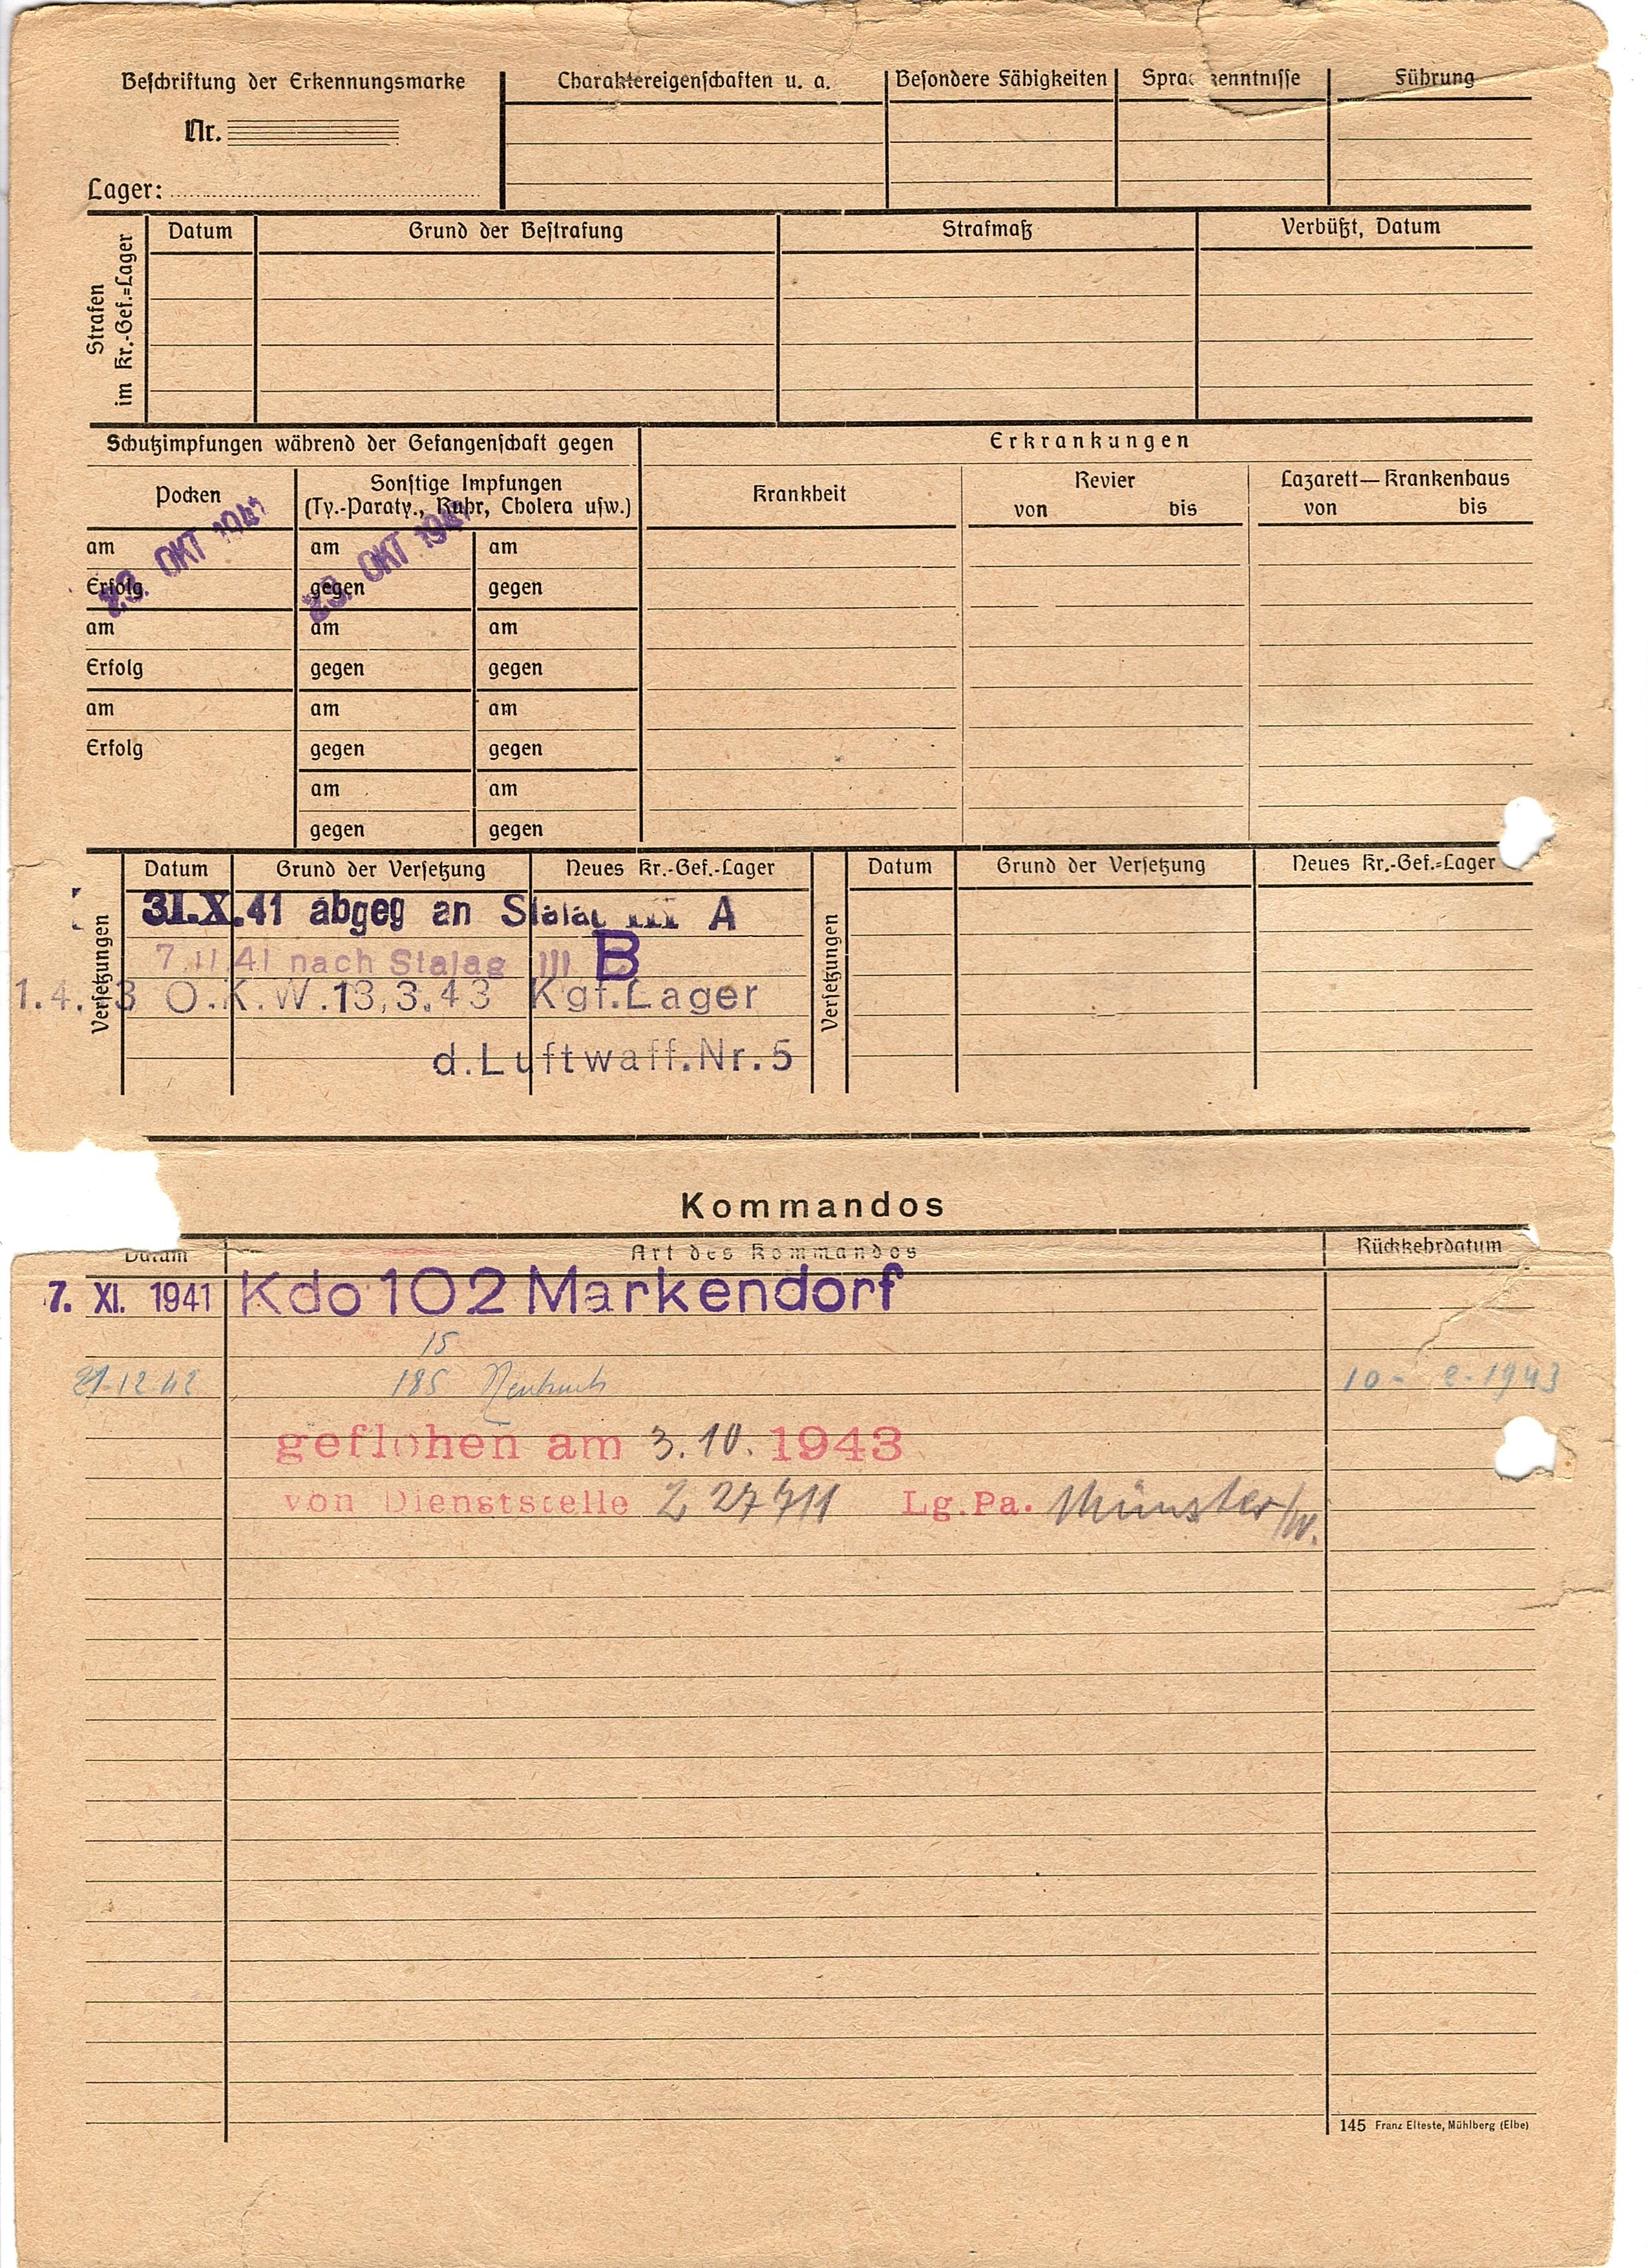 Beschriftung der Erkennungsmarke
Nr.
Lager:
Charaktereigenschaften u. a.
Besondere Fähigkeiten
Führung
Strafen
im Kr.-Gef.=Lager
Datum Grund der Bestrafung Strafmaß Verbüßt, Datum
Schutzimpfungen während der Gefangenschaft gegen
Erkrankungen
Pocken
Sonstige Impfungen
(Ty.-Paraty., Ruhr, Cholera usw.)
Krankheit
Revier
von bis
Lazarett—Krankenhaus
von bis
23. OKT 1941 23. OKT 1941
am am am
Erfolg gegen gegen
am am am
Erfolg gegen gegen
am am am
Erfolg gegen gegen
am am
gegen gegen
Versetzungen
Datum Grund der Versetzung Neues Kr.-Gef.-Lager
31.X.41 abgeg an Stalag III A
7.11.41 nach Stalag III B
1.4. 3 O.K.W.13,3.43 Kgf.Lager
d.Luftwaff.Nr.5
Versetzungen
Datum Grund der Versetzung Neues Kr.-Gef.=Lager
Kommandos
Datum Art des Kommandos Rückkehrdatum
7. XI. 1941 Kdo 102 Markendorf
15
21-12-42 185 10- 2-1943
geflohen am 3.10. 1943
von Dienststelle L 27711 Lg.Pa. Münster/W.
145 Franz Elteste, Mühlberg (Elbe)